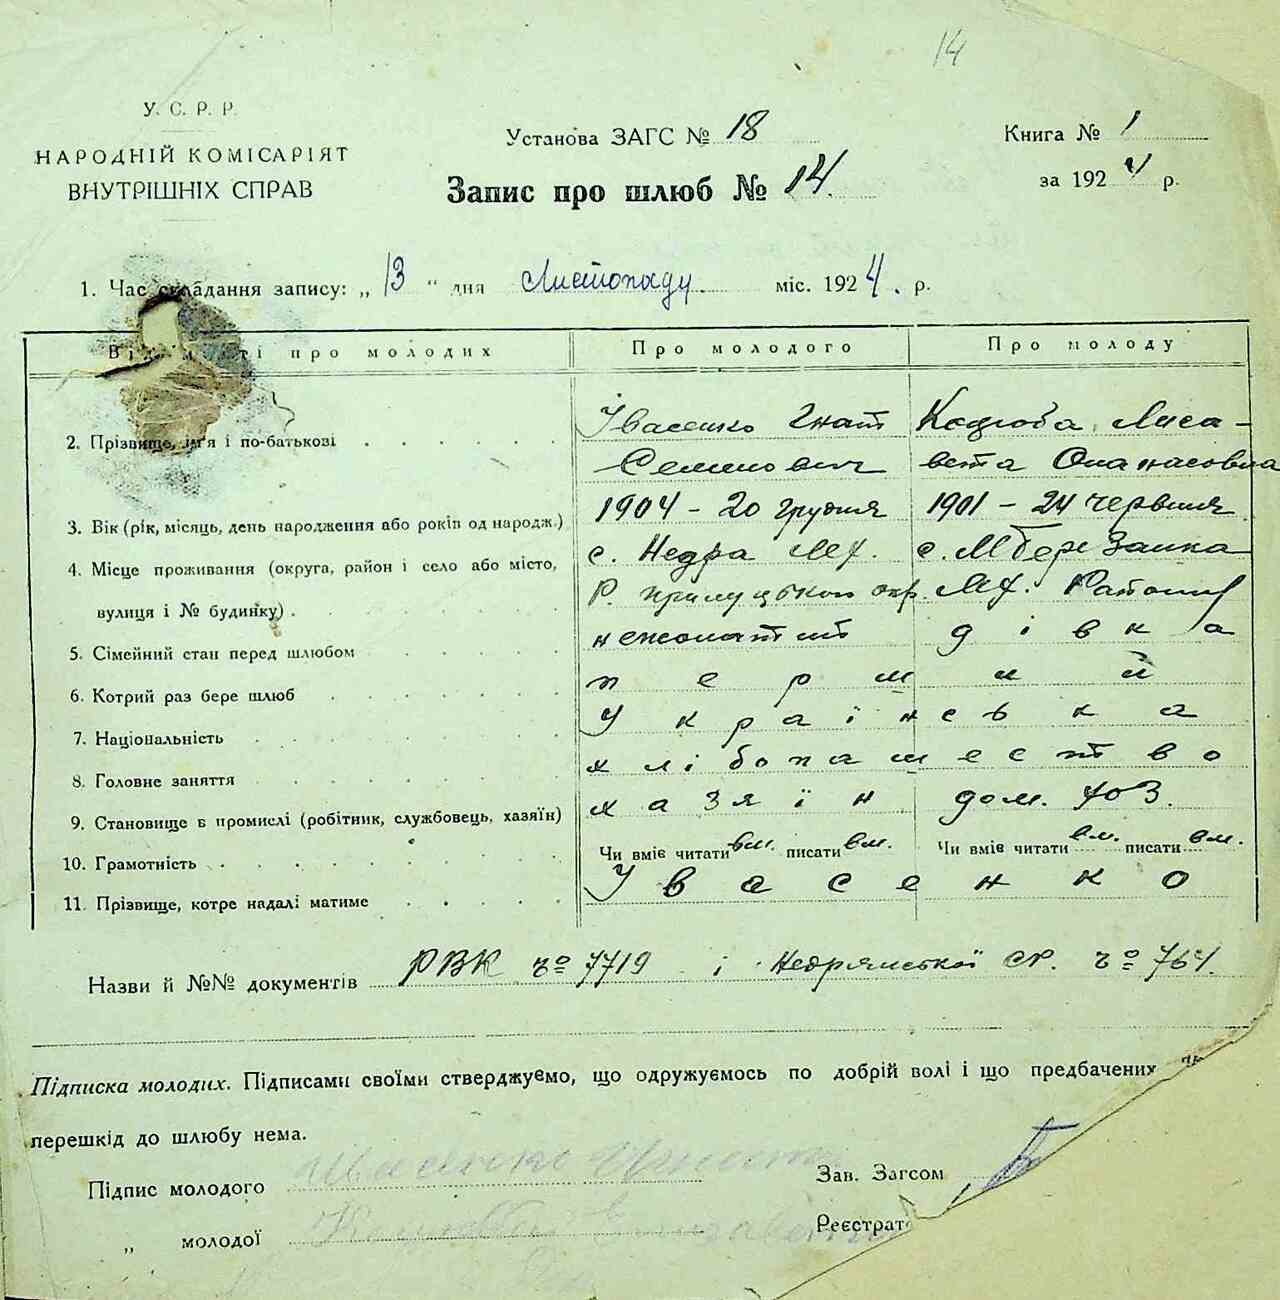 14
У. С. Р. Р.
НАРОДНІЙ КОМІСАРІЯТ
ВНУТРІШНІХ СПРАВ
Установа ЗАГС № 18
Запис про шлюб № 14.
Книга № 1
за 1924 р.
1. Час складання запису: „ 13 “ дня Листопаду. міс. 1924. р.
Від і про молодих Про молодого Про молоду
2. Прізвище, ім'я і по-батькові Івасенко Гнат Лиса-
Семенович вета Опанасовна
3. Вік (рік, місяць, день народження або років од народж.) 1904 - 20 грудня 1901 - 24 червня
4. Місце проживання (округа, район і село або місто, с. Недра МХ. с. МБерезанка
вулиця і № будинку) . Р. прилуцької окр. МХ. Району
5. Сімейний стан перед шлюбом нежонатий дівка
6. Котрий раз бере шлюб перший
7. Національність Українська
8. Головне заняття хлібопашество
9. Становище в промислі (робітник, службовець, хазяїн) хазяїн дом. хоз.
10. Грамотність Чи вміє читати вм. писати вм. Чи вміє читати вм. писати вм.
11. Прізвище, котре надалі матиме Івасенко
Назви й №№ документів РВК чо 7719 і Недрянської СР. чо 764.
Підписка молодих. Підписами своїми стверджуємо, що одружуємось по добрій волі і що предбачених
перешкід до шлюбу нема.
Підпис молодого Зав. Загсом
„ молодої Реєстрат